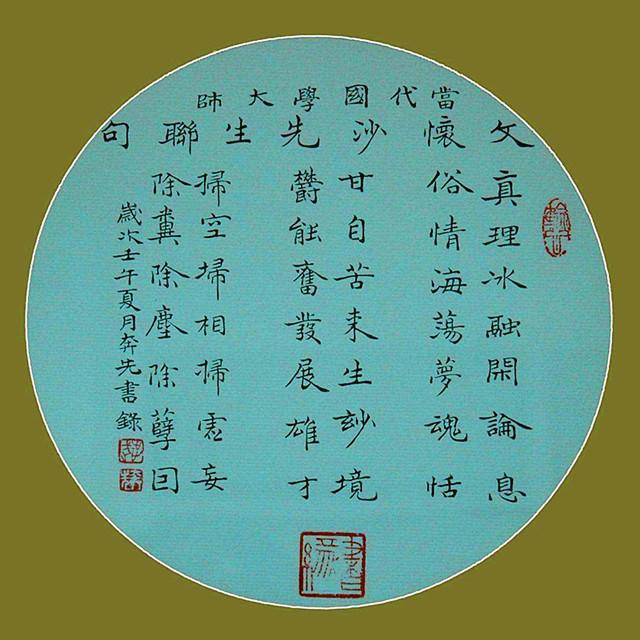 當代國學大師
文懷沙先生聯句
真理冰融閑論息
俗情海蕩夢魂恬
甘自苦来生玅境
鬱能奮發展雄才
掃空掃相掃虛妄
除糞除塵除孽囙
歲次壬午夏月奔先書錄